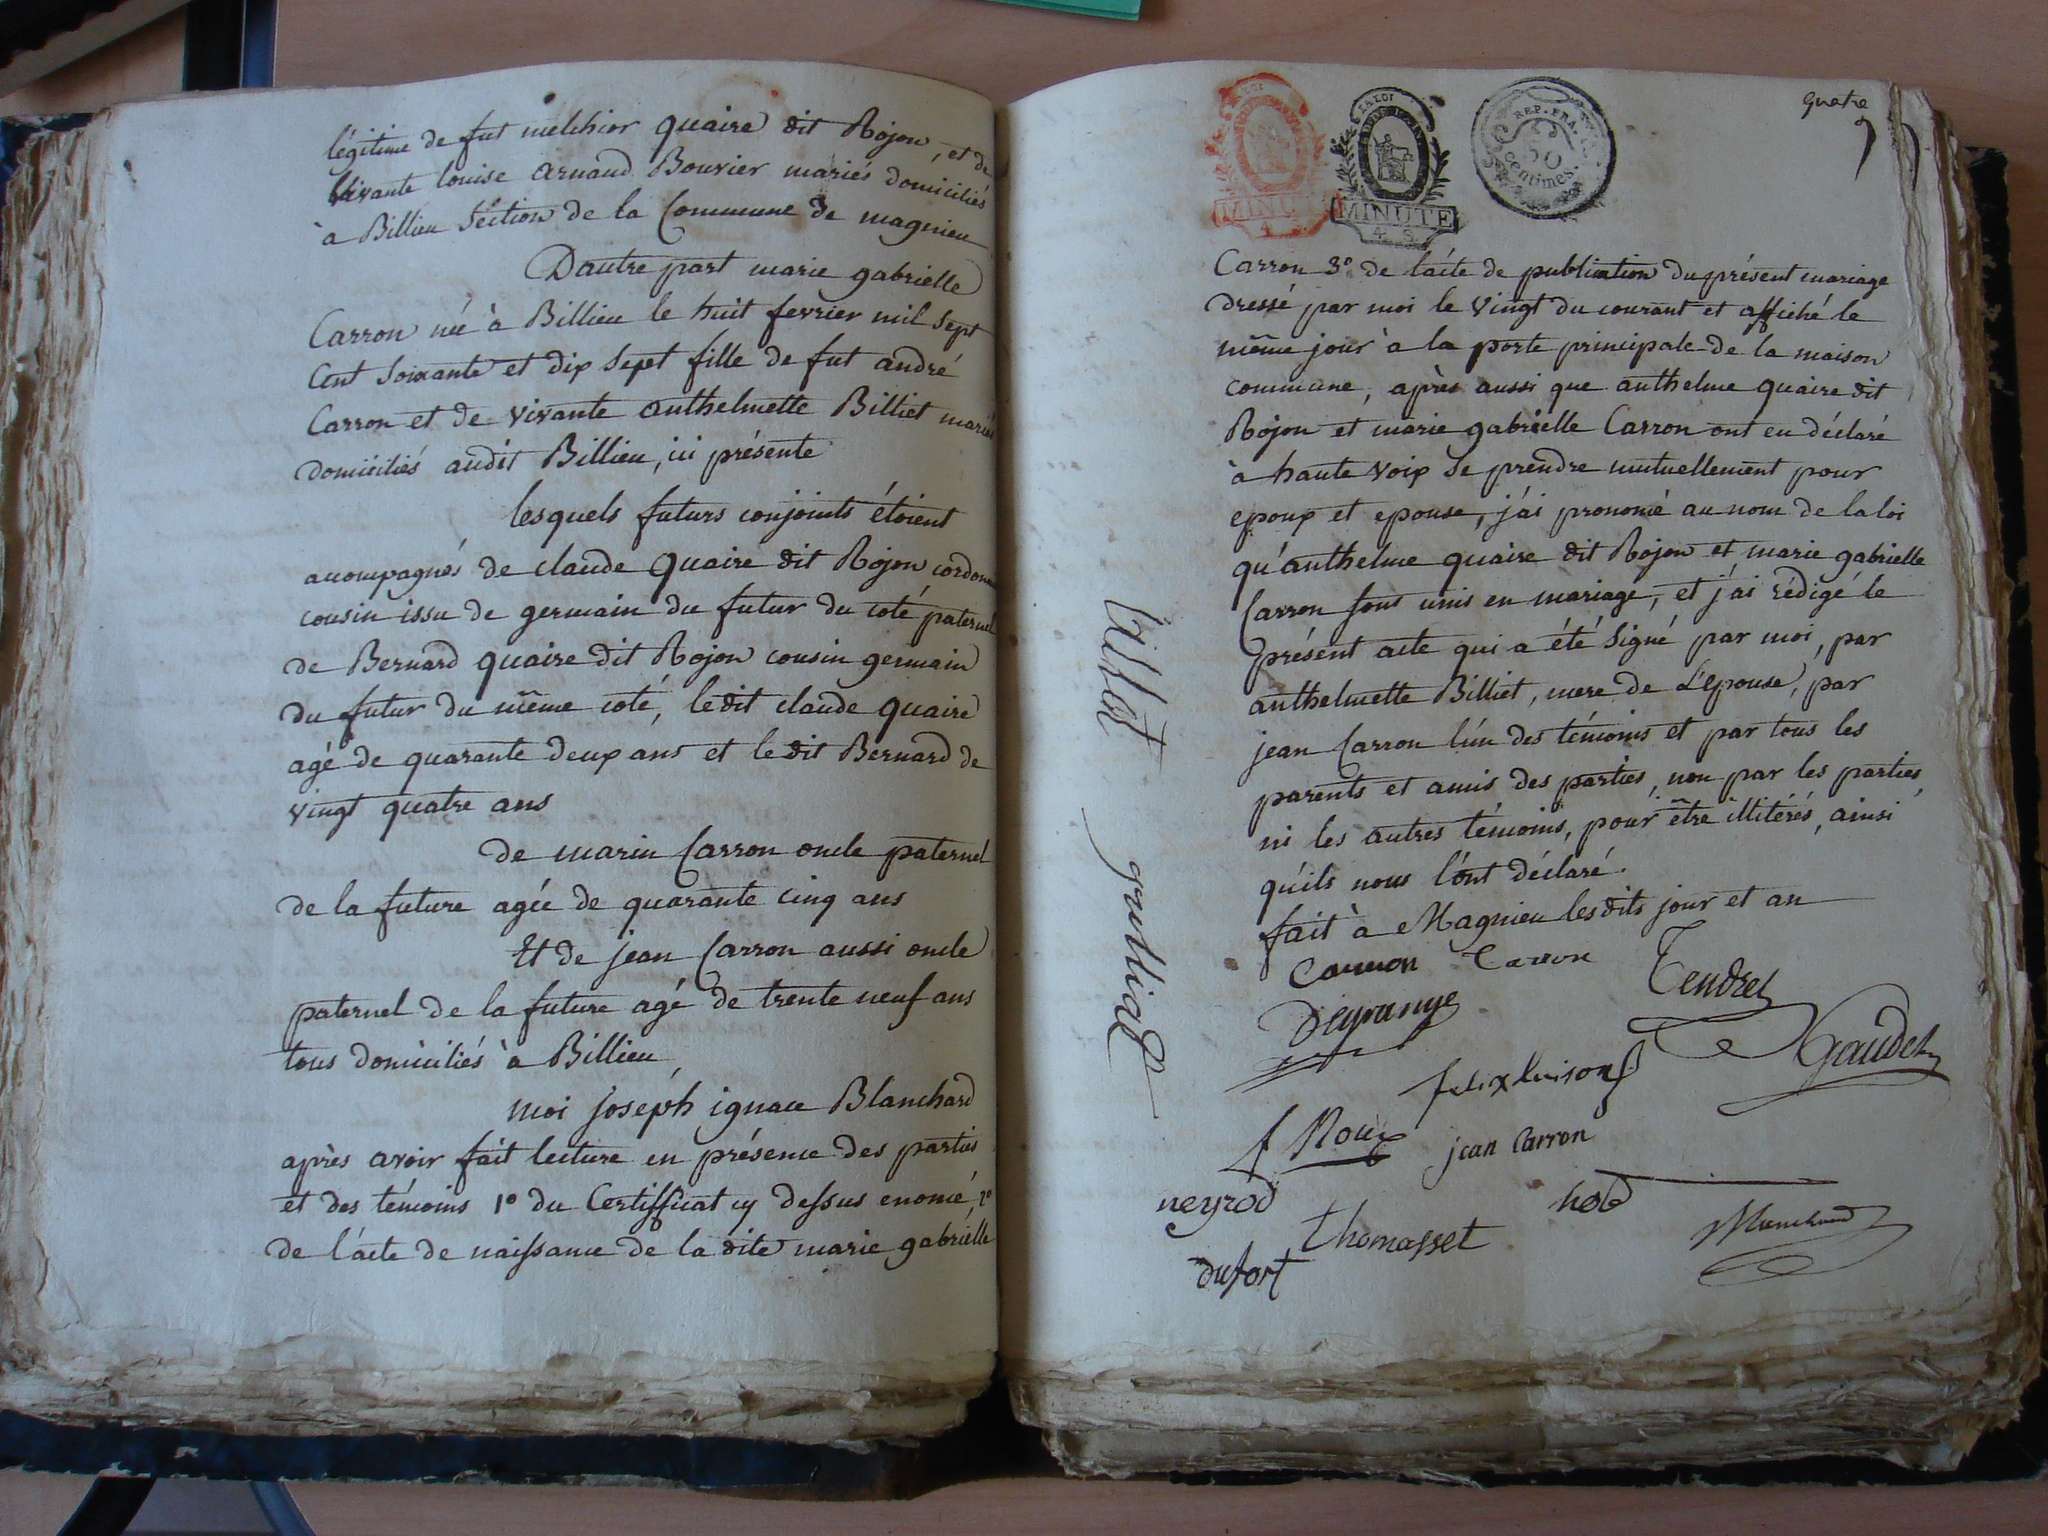 légitime de fut melchior quaire dit Rojon, et de
vivante louise arnaud Bouvier mariés domiciliés
à Billieu séction de la Commune de magnieu
Dautre part marie gabrielle
Carron née à Billieu le huit fevrier mil sept
Cent soixante et dix sept fille de fut andré
Carron et de vivante anthelmette Billiet mariés
domiciliés audit Billieu, ici présente
lesquels futurs conjoints étoient
acompagnés de claude Quaire dit Rojon
cousin issu de germain du futur du coté paternel
de Bernard quaire dit Rojon cousin germain
du futur du même coté, le dit claude quaire
agé de quarante deux ans et le dit Bernard de
vingt quatre ans
de marin Carron oncle paternel
de la future agée de quarante cinq ans
Et de jean Carron aussi oncle
paternel de la future agé de trente neuf ans
tous domiciliés à Billieu,
moi joseph ignace Blanchard
après avoir fait lecture en présence des parties
et des témoins 1º du Certifficat cy dessus enomé, 2º
de l'acte de naissance de la dite marie gabriélle
LA LOI
MINUTE
LA LOI
MINUTE
4. S.
REP. FRA.
50
centimes.
quatre
Carron 3º de l'acte de publication du présent mariage
dressé par moi le vingt du courant et affiché le
même jour à la porte principale de la maison
commune, après aussi que anthelme quaire dit
Rojon et marie gabrielle Carron ont eu déclaré
à haute voix se prendre mutuellement pour
epoux et epouse, j'ai pronomé au nom de la loi
qu'anthelme quaire dit Rojon et marie gabrielle
Carron sont unis en mariage, et j'ai rédigé le
présent acte qui a été signé par moi, par
anthelmette Billiet, mere de L'epouse, par
jean Carron l'un des témoins et par tous les
parents et amis des parties, non par les parties,
ni les autres témoins, pour être illitérés, ainsi
qu'ils nous l'ont déclaré.
fait à Magnieu les dits jour et an
Carron Carron Tendret
Gaudet
f Roux jean Carron
neyrod
thomasset
dufort